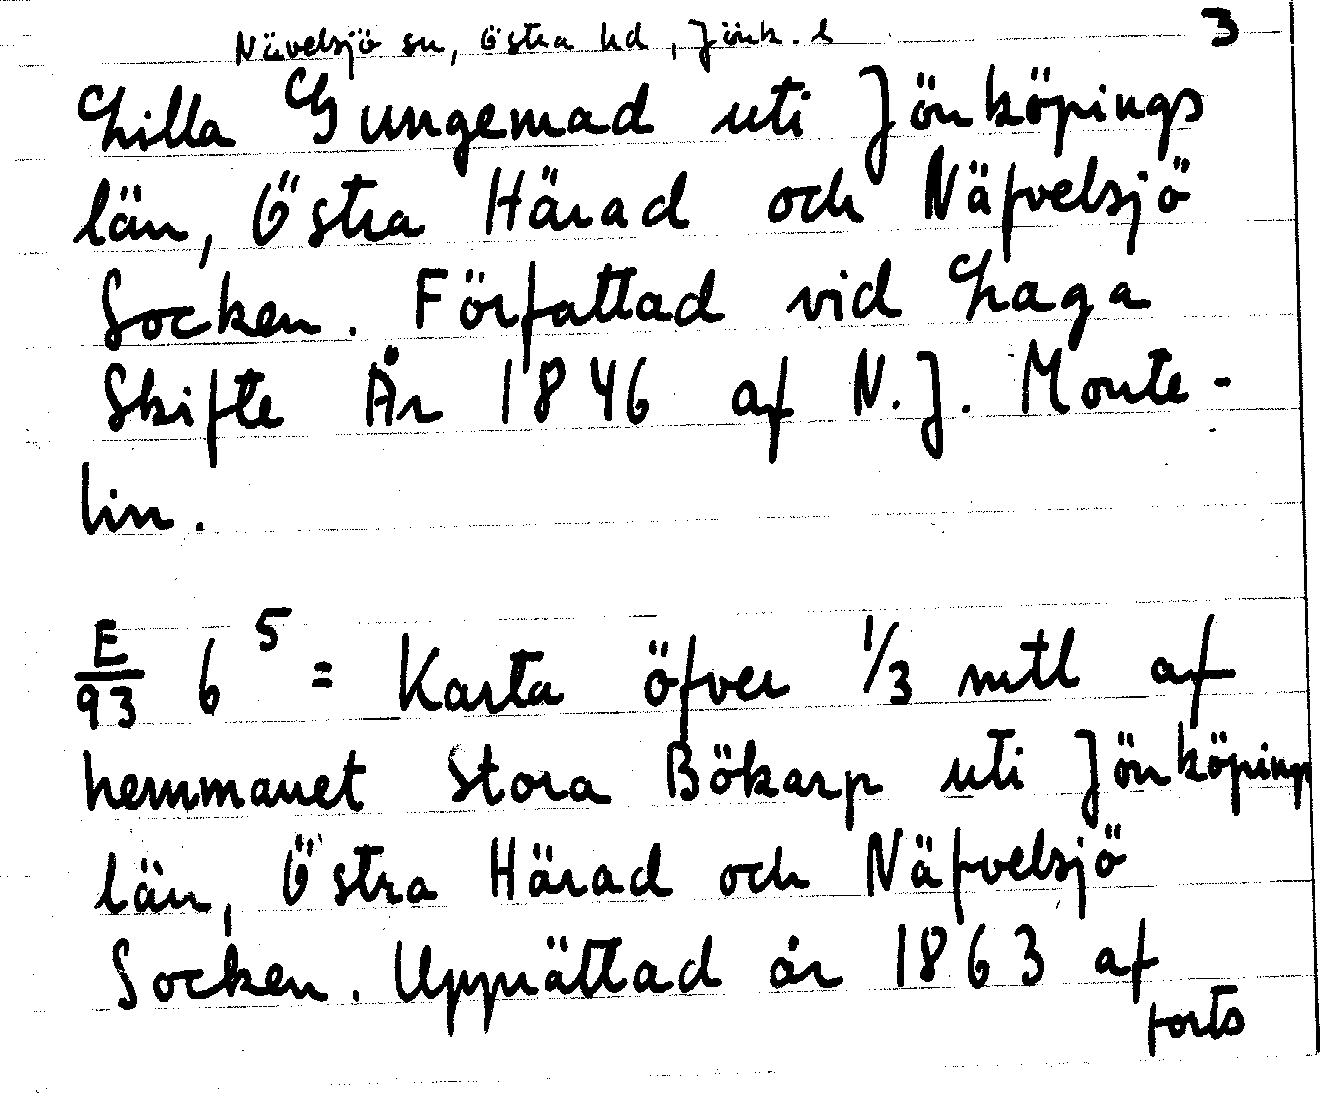 Nävelsjö sn, Östra hd, Jönk. l
3
Lilla Gungemad uti Jönköpings
län, Östra Härad och Näfvelsjö
Socken. Författad vid Laga
Skifte År 1846 af N. J. Monte-
lin.
E/93 6 5 = Karta öfver 1/3 mtl af
hemmanet Stora Bökarp uti Jönköpings
län, Östra Härad och Näfvelsjö
Socken. Upprättad år 1863 af
forts